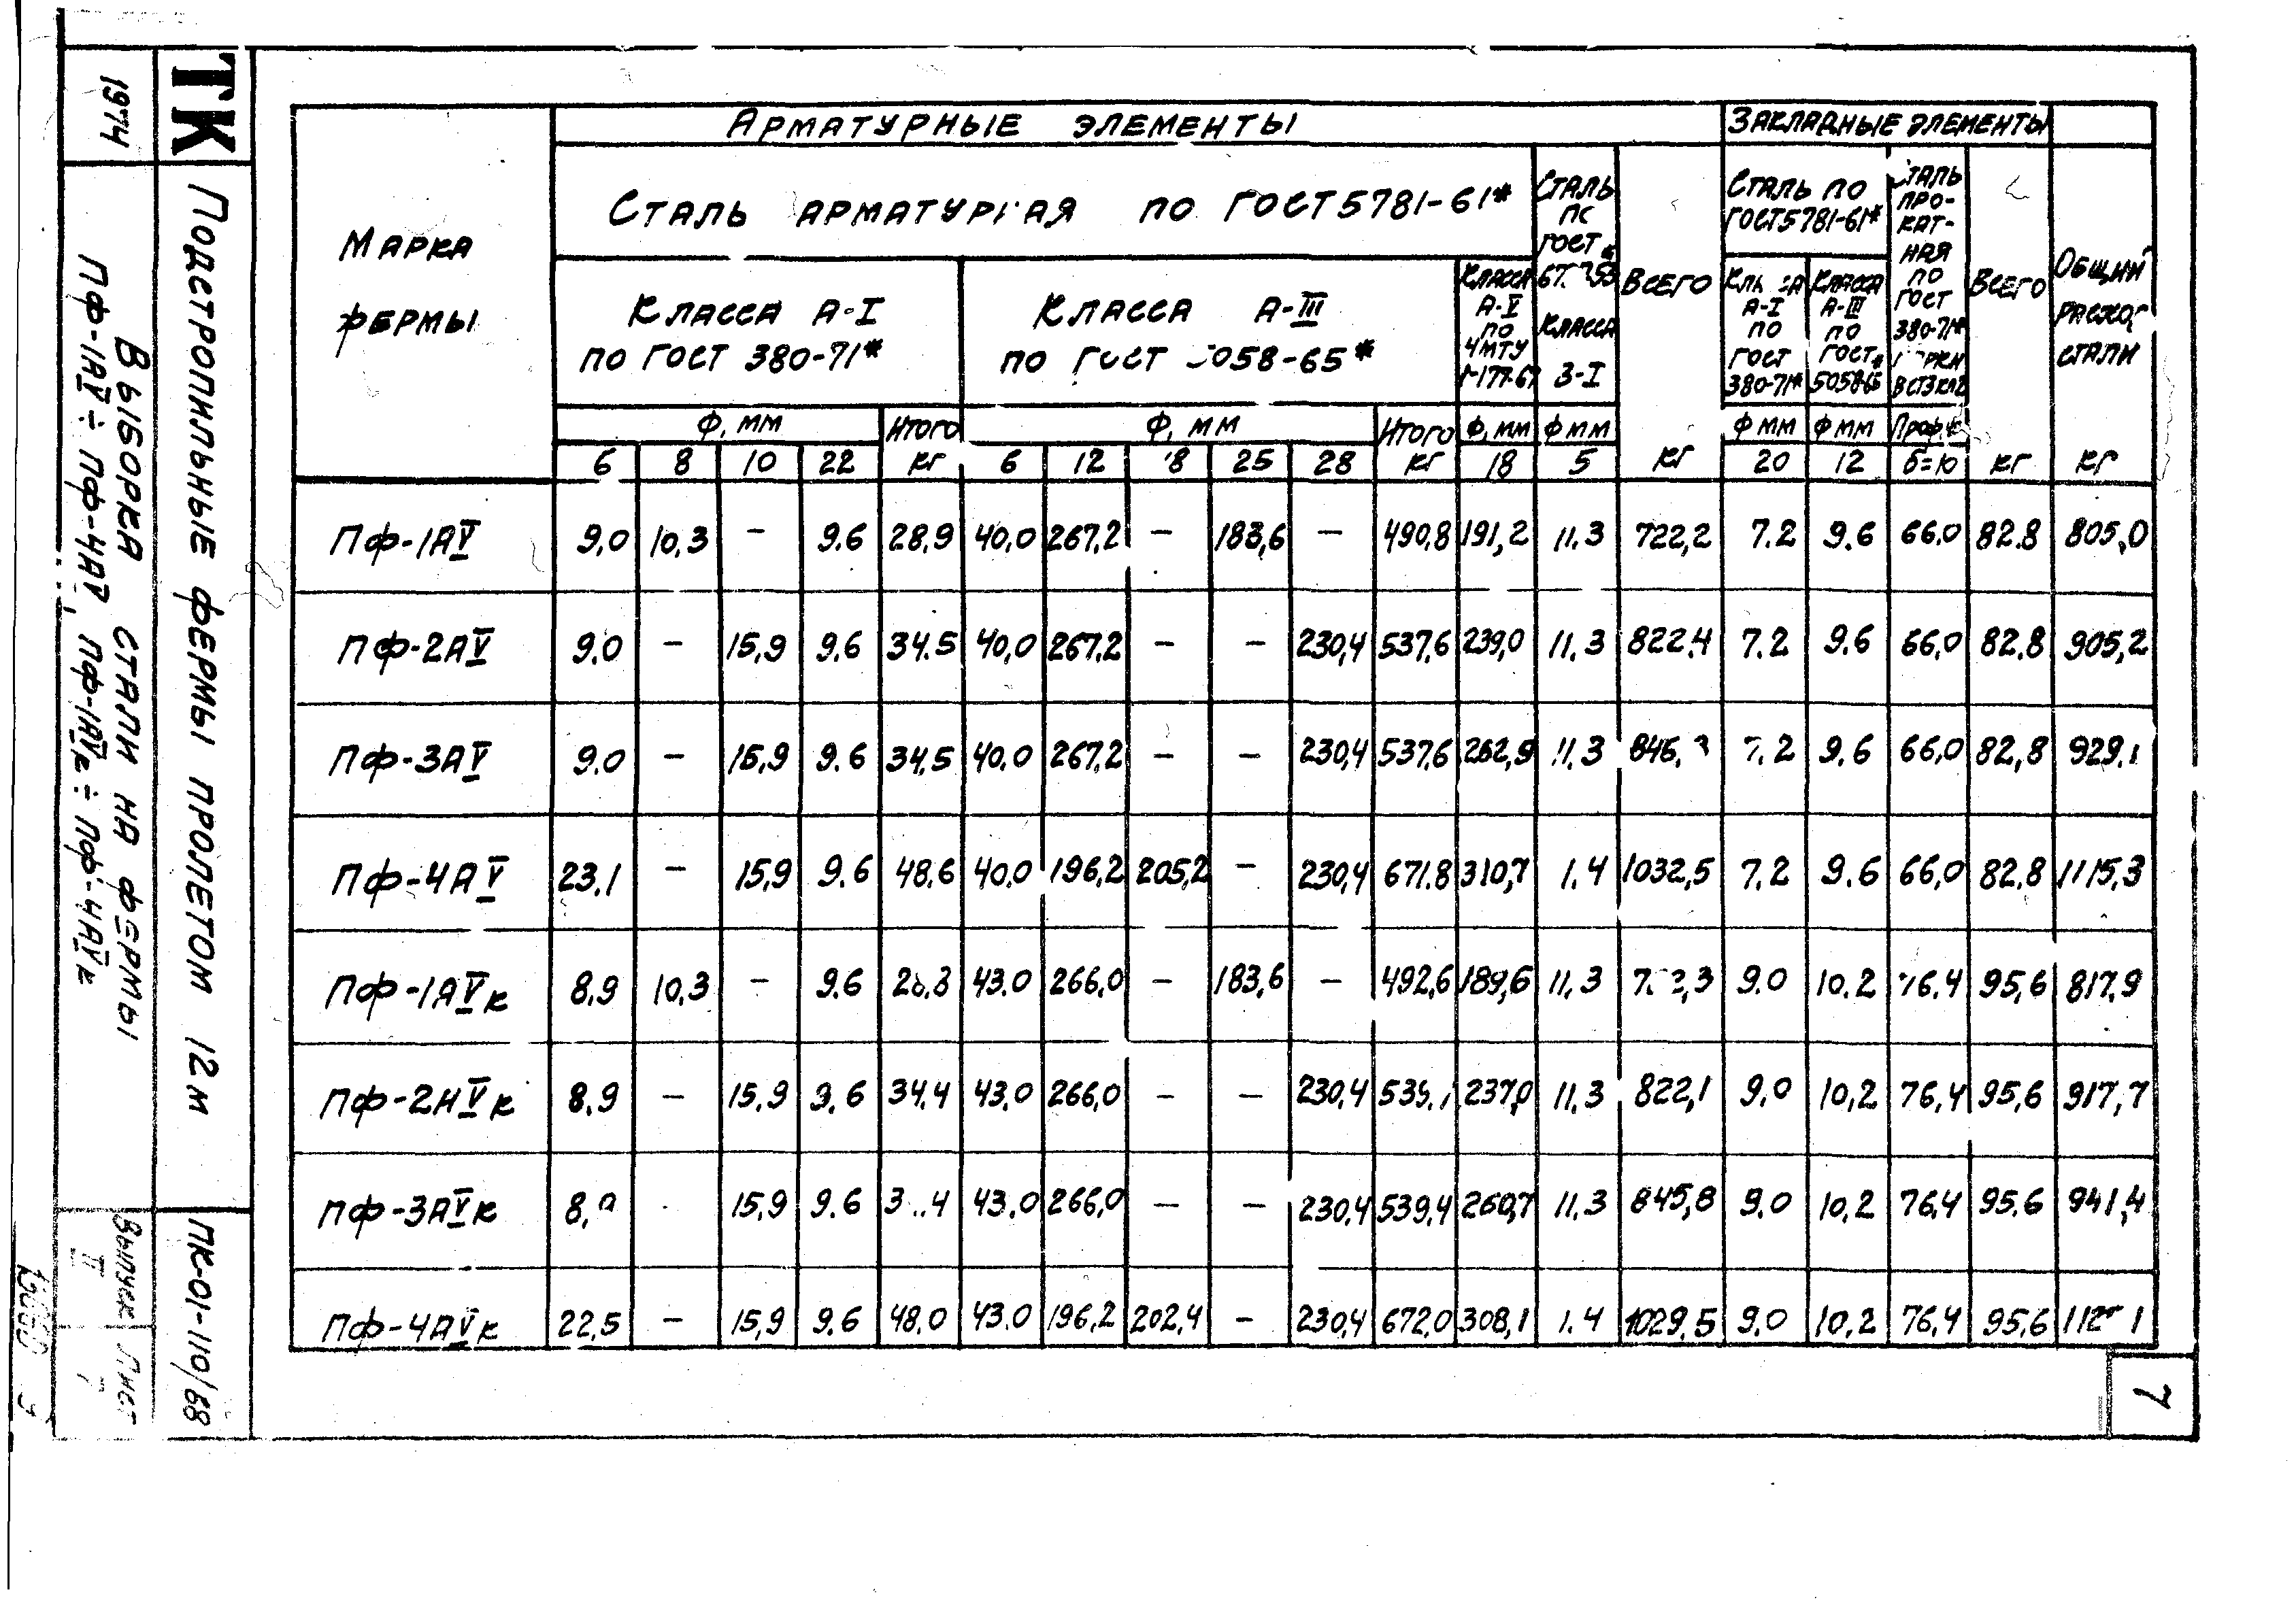 ТК
1974
Подстропильные фермы пролетом 12м
Выборка стали на фермы
ПФ-1АV ÷ ПФ-4АV, ПФ-1АVк ÷ ПФ-4АVк
ПК-01-110/68
Выпуск Лист
II 7
Марка фермы
Арматурные элементы
Закладные элементы
Сталь арматурная по ГОСТ 5781-61*
Класса А-I
по ГОСТ 380-71*
Класса А-III
по ГОСТ 5058-65*
Класса А-V по ЧМТУ
Сталь по ГОСТ
Класса В-I
Всего
Сталь по ГОСТ 5781-61*
Класса А-I по ГОСТ 380-71*
Класса А-III по ГОСТ 5058-65
Сталь прокатная по ГОСТ 380-71* марки ВСТ3кп2
Всего
Общий расход стали
Ф, мм Итого Ф, мм Итого Ф, мм Ф мм Ф мм Ф мм
6 8 10 22 кг 6 12 18 25 28 кг 18 5 кг 20 12 δ=10 кг кг
ПФ-1АV 9,0 10,3 — 9.6 28,9 40,0 267,2 — 183,6 — 490,8 191,2 11.3 722,2 7.2 9.6 66,0 82.8 805,0
ПФ-2АV 9.0 — 15,9 9.6 34.5 40,0 267,2 — — 230,4 537,6 239,0 11.3 822,4 7.2 9.6 66,0 82.8 905,2
ПФ-3АV 9.0 — 15,9 9.6 34,5 40,0 267,2 — — 230,4 537,6 262,9 11.3 846,3 7.2 9.6 66,0 82,8 929.1
ПФ-4АV 23,1 — 15,9 9.6 48.6 40.0 196,2 205,2 — 230,4 671.8 310,7 1.4 1032,5 7.2 9.6 66,0 82.8 1115,3
ПФ-1АVк 8.9 10,3 — 9.6 28.8 43.0 266,0 — 183,6 — 492,6 189,6 11.3 9.0 10.2 76.4 95,6 817,9
ПФ-2АVк 8.9 — 15,9 9.6 34,4 43,0 266,0 — — 230,4 237,0 11.3 822,1 9,0 10,2 76,4 95,6 917,7
ПФ-3АVк 15,9 9.6 43.0 266,0 — — 230,4 539,4 260,7 11.3 845,8 9.0 10,2 76,4 95.6 941,4
ПФ-4АVк 22,5 — 15,9 9.6 48,0 43.0 196,2 202,4 — 230,4 672,0 308,1 1.4 1029,5 9.0 10,2 76,4 95,6
7